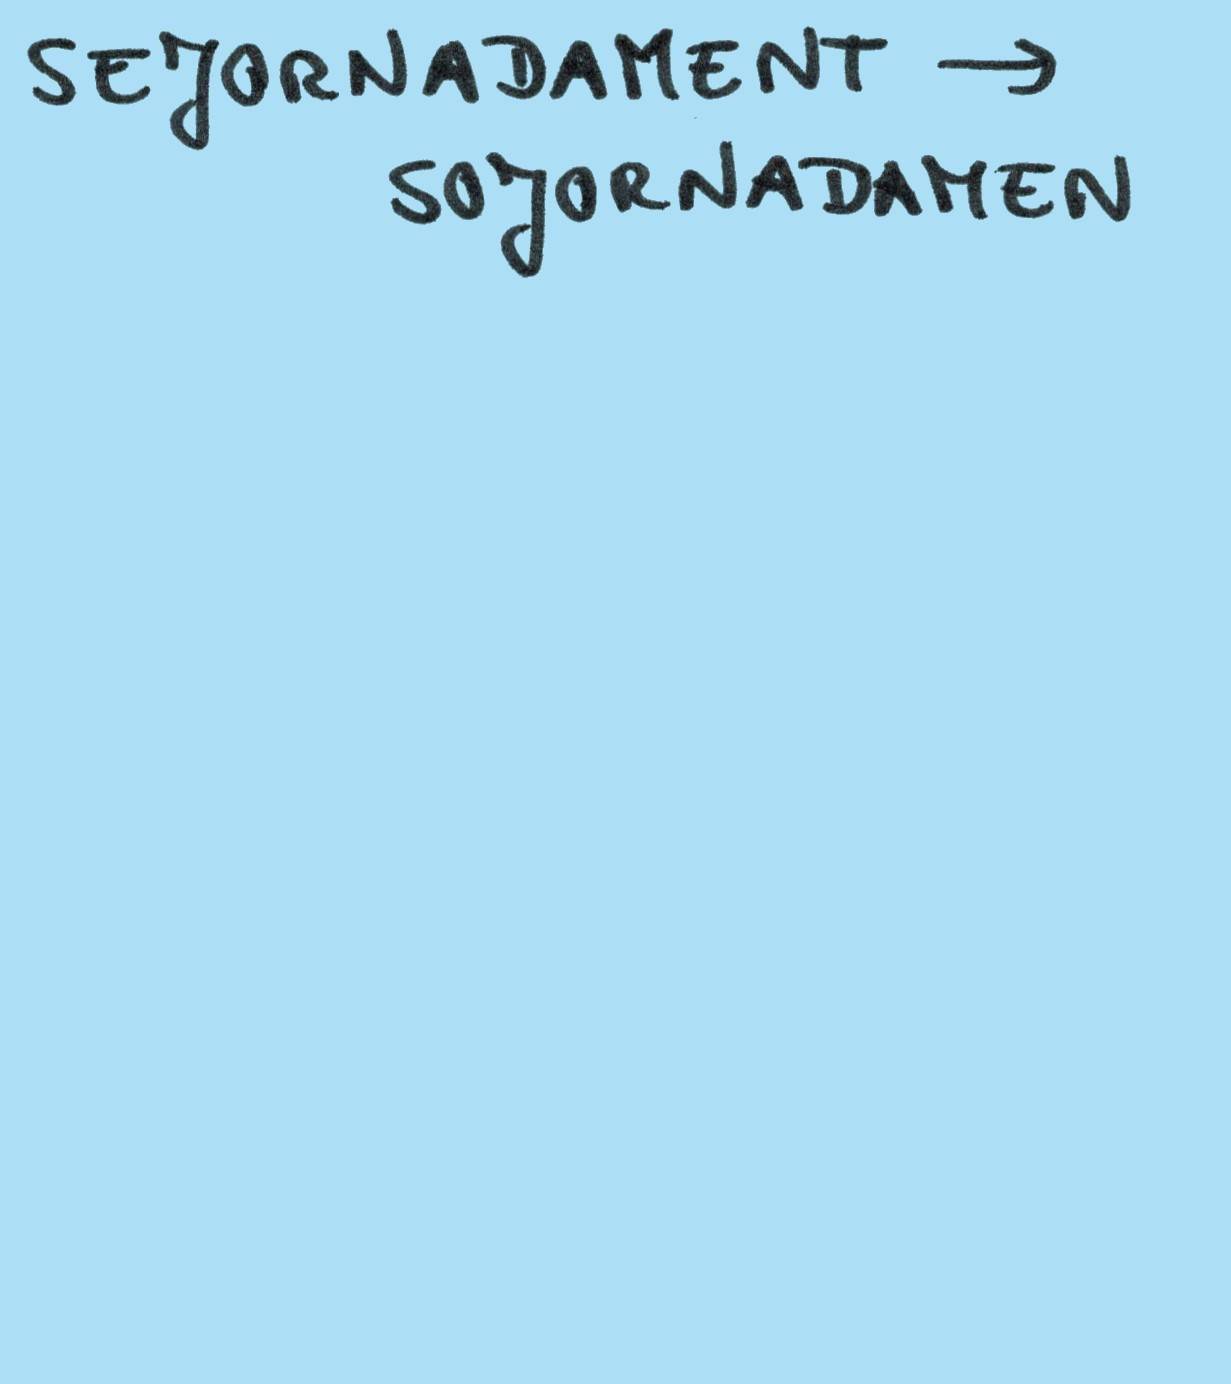 SEJORNADAMENT →
SOJORNADAMEN